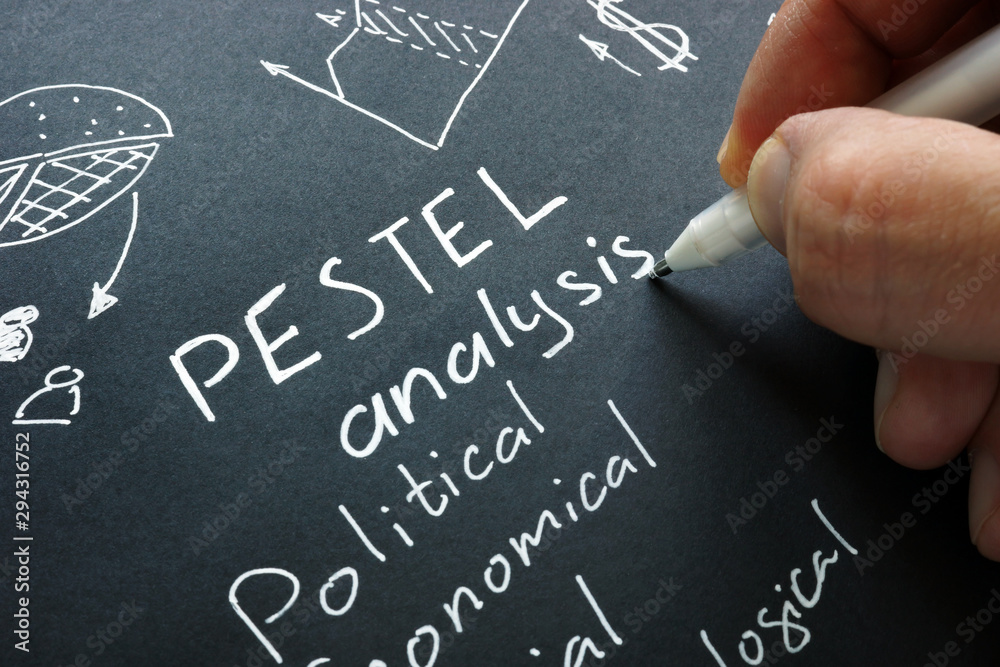 PESTEL
analysis
Political
onomical
ial
logical
Adobe Stock | #294316752